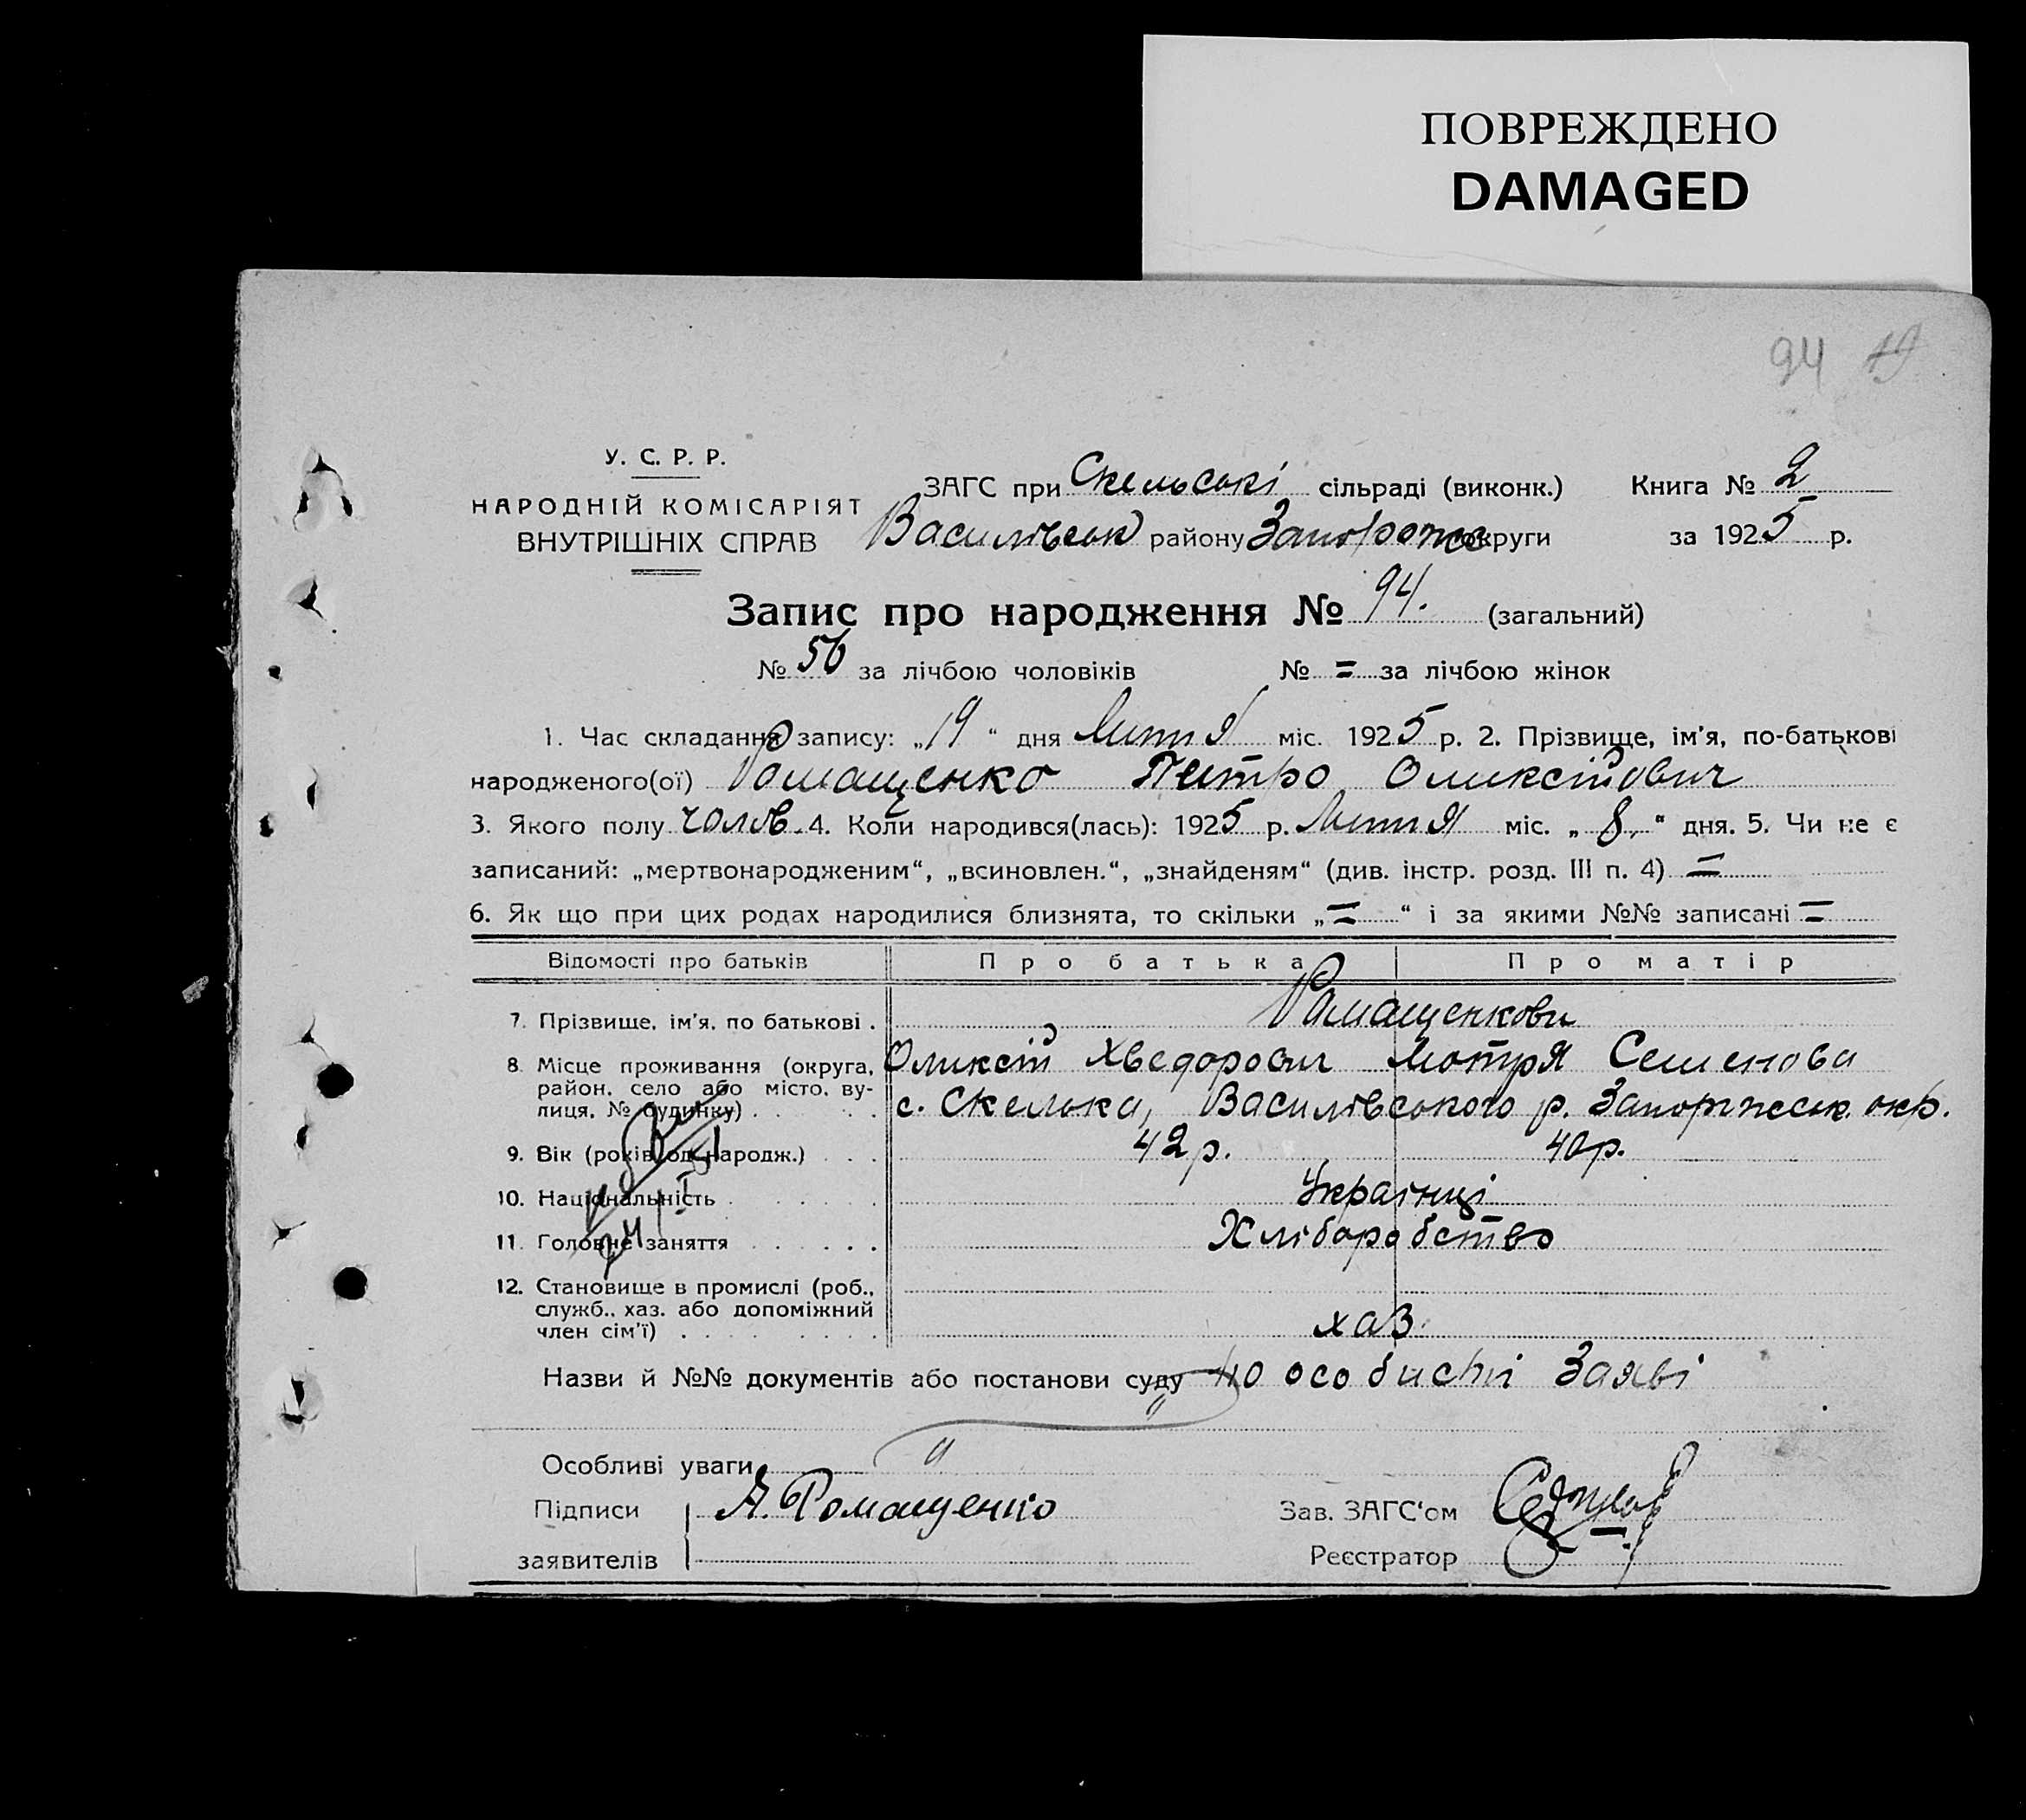 ПОВРЕЖДЕНО
DAMAGED
94 19
У. С. Р. Р.
НАРОДНІЙ КОМІСАРІЯТ
ВНУТРІШНІХ СПРАВ
ЗАГС при Скельські сільраді (виконк.) Книга № 2
Василівськ району Запорожс округи за 1925 р.
Запис про народження № 94. (загальний)
№ 56 за лічбою чоловіків № = за лічбою жінок
1. Час складання запису: „19“ дня Липня міс. 1925 р. 2. Прізвище, ім'я, по-батькові
народженого(ої) Ромащенко Петро Оликсійович
3. Якого полу чолов. 4. Коли народився(лась): 1925 р. Липня міс. „8.“ дня. 5. Чи не є
записаний: „мертвонародженим“, „всиновлен.“, „знайденям“ (див. інстр. розд. III п. 4) =
6. Як що при цих родах народилися близнята, то скільки „=“ і за якими №№ записані =
Відомості про батьків Про батька Про матір
7. Прізвище, ім'я, по батькові . Ромащенкови
8. Місце проживання (округа, Оликсій Хведорович Мотря Семенова
район, село або місто, ву-
лиця, № будинку) . . . . с. Скелька, Василівського р. Запоріжськ. окр.
9. Вік (років од народж.) . . . 42 р. 40 р.
10. Національність . . . . Українці
11. Головне заняття . . . . . . Хліборобство
12. Становище в промислі (роб.,
служб., хаз. або допоміжний
член сім'ї) . . . . . . . . . хаз.
Назви й №№ документів або постанови суду по особисті Заяві
Особливі уваги
Підписи А. Ромащенко Зав. ЗАГС'ом
заявителів Реєстратор